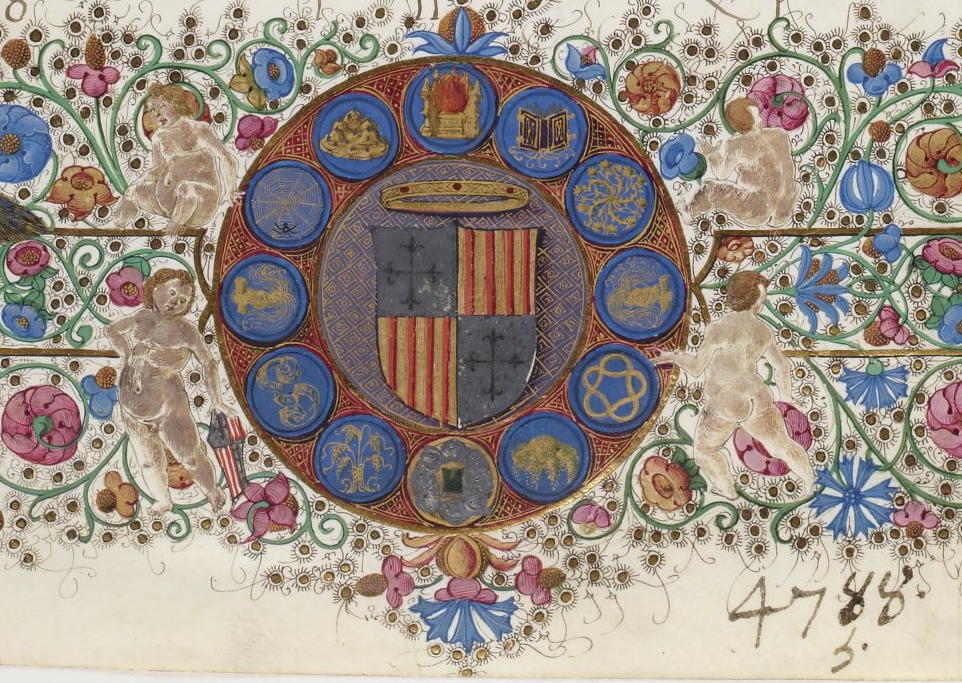 4788.
5.